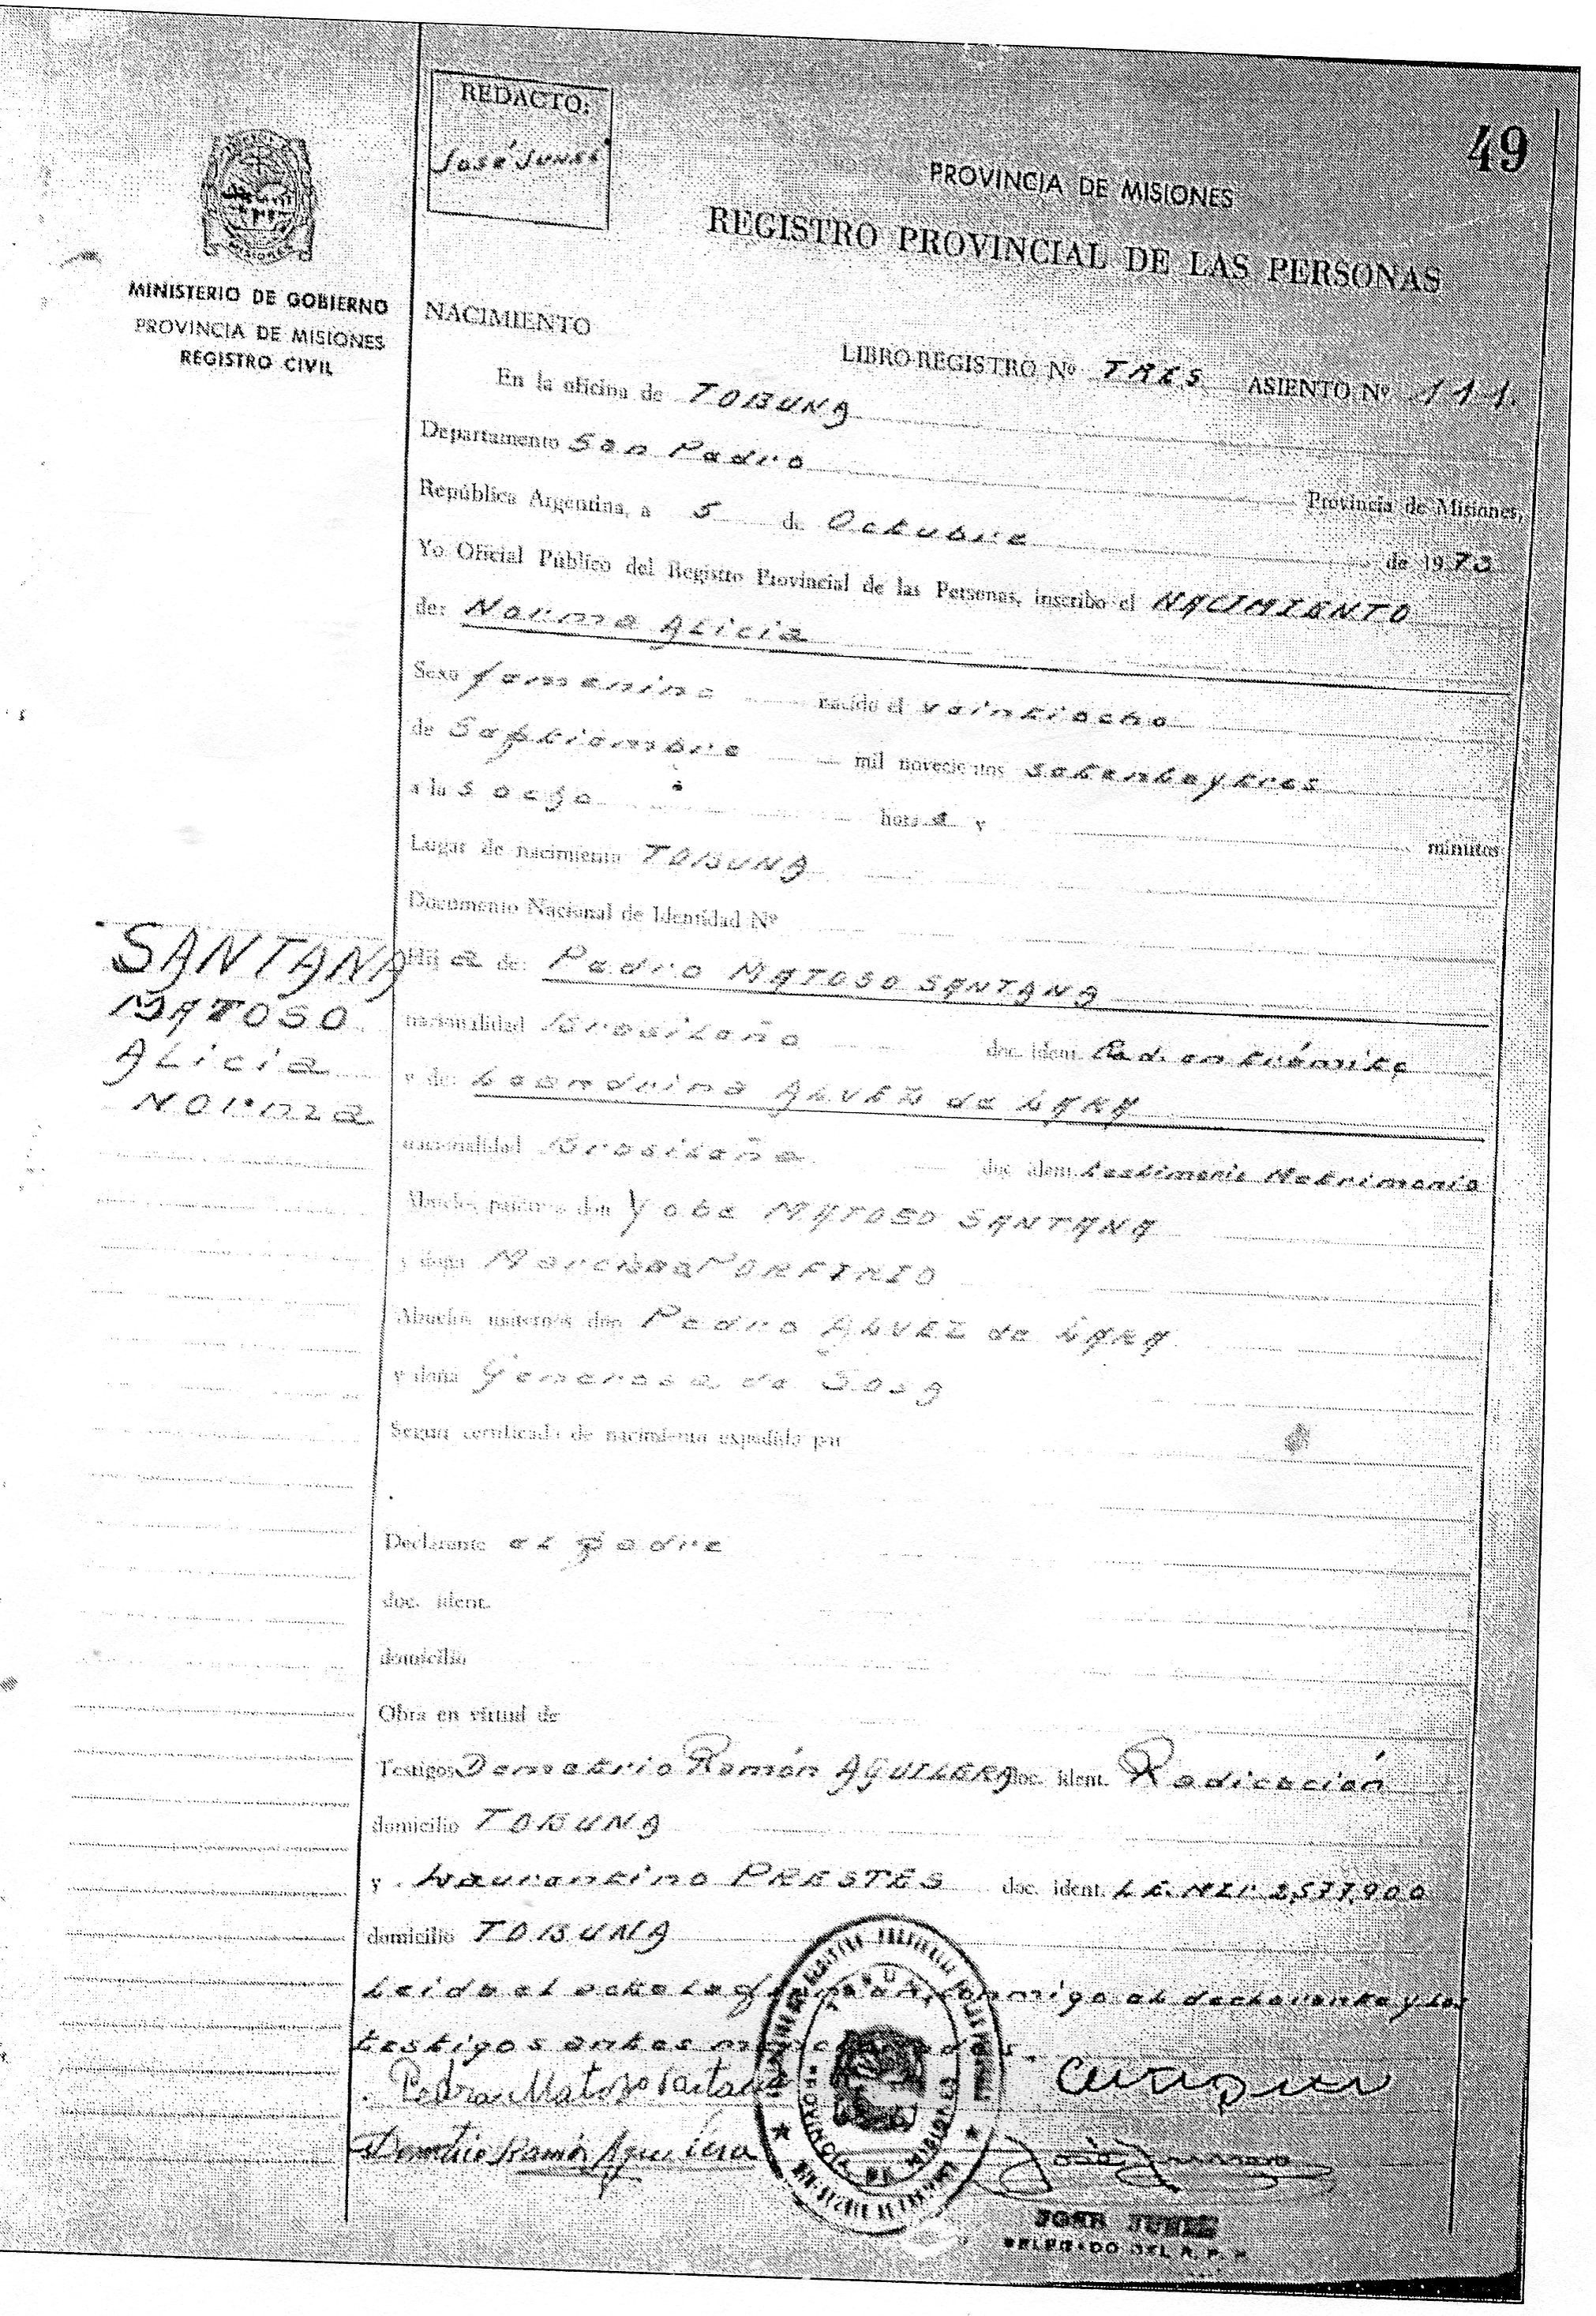 49
REDACTO:
José Junes
PROVINCIA DE MISIONES
REGISTRO PROVINCIAL DE LAS PERSONAS
MINISTERIO DE GOBIERNO
PROVINCIA DE MISIONES
REGISTRO CIVIL
NACIMIENTO
LIBRO-REGISTRO Nº TRES ASIENTO Nº 111.
En la oficina de TOBUNA
Departamento San Pedro Provincia de Misiones,
República Argentina, a 5 de Octubre de 1973
Yo Oficial Público del Registro Provincial de las Personas, inscribo el NACIMIENTO
de: Norma Alicia
Sexo femenino nacido el veintiocho
de Septiembre mil novecientos setentaytres
a las ocho horas y minutos
Lugar de nacimiento TOBUNA
Documento Nacional de Identidad Nº
SANTANA
MATOSO
Alicia
Norma
Hija de: Pedro MATOSO SANTANA
nacionalidad Brasileño doc. ident. Rad. en trámite
y de: Leonduina ALVEZ de LARA
nacionalidad Brasileña doc. ident. testimonio Matrimonio
Abuelos paternos don Yobe MATOSO SANTANA
y doña PORFIRIO
Abuelos maternos don Pedro ALVEZ de LARA
y doña Generosa de Sosa
Según certificado de nacimiento expedido por
Declarante el padre
doc. ident.
domicilio
Obra en virtud de
Testigos Demetrio Ramón AGUILERA doc. ident. Radicación
domicilio TOBUNA
y Laurentino PRESTES doc. ident. L.E.MI. 2,577,900
domicilio TOBUNA
Leida el acta la firman, conmigo el declarante y los
testigos antes mencionados.
Pedro Matoso Santana
Demetrio Ramón Aguilera
PROVINCIA DE MISIONES
JOSE JUNES
DELEGADO DEL R. P. P.